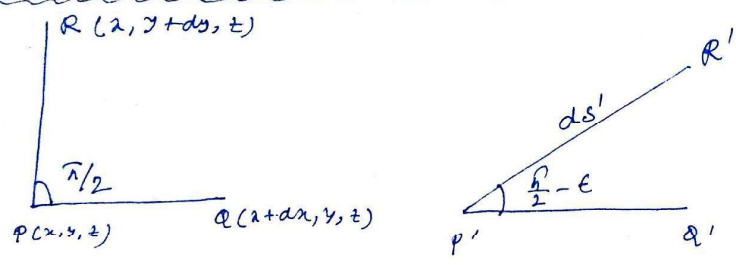 R (x, y+dy, z)
π/2
P(x, y, z)
Q (x+dx, y, z)
R'
ds'
π/2 - ε
P'
Q'